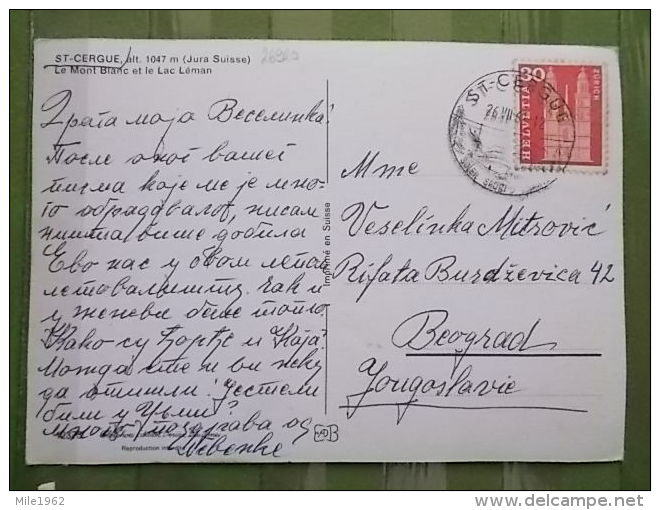 ST-CERGUE, alt. 1047 m (Jura Suisse)
Le Mont Blanc et le Lac Léman
26969
Драга моја Веселинка!
После оног вашег
писма које ме је мно-
го обрадовало, нисам
ништа више добила
Ево нас у овом лепом
летовалишту. Чак и
у женеви беше топло.
Како су Ђорђе и Каја?
Можда сте и ви неку
да отишли! Јесте ли
били у
много поздрава од
Невенке
Reproduction interdite
Imprimé en Suisse
ST-CERGUE
26.VII
HELVETIA 30
ZÜRICH
Mme
Veselinka Mitrović
Rifata Burdževica 42
Beograd
Jougoslavie
Mile1962
delcampe.net